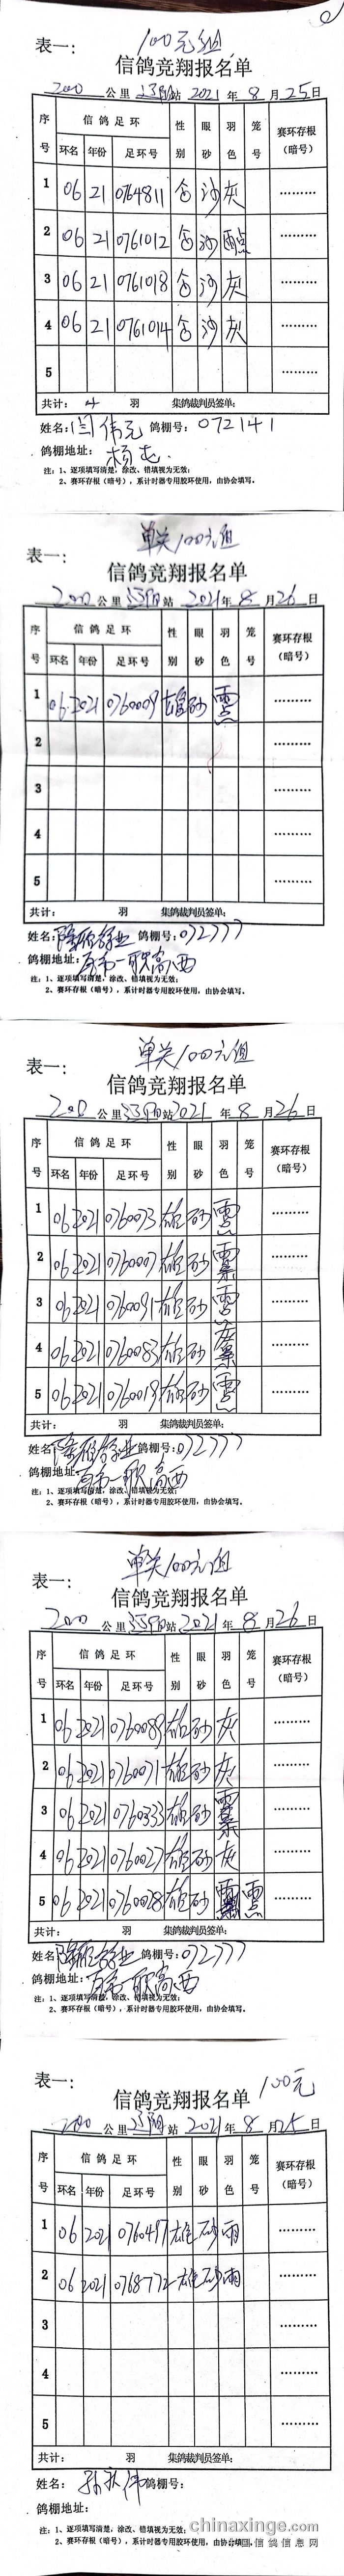 100元组
表一:
信鸽竞翔报名单
200 公里 辽阳 站 2021 年 8 月 25 日
序号 信鸽足环 性别 眼砂 羽色 笼号 赛环存根(暗号)
环名 年份 足环号
1 06 21 0764811 合 沙 灰 ………
2 06 21 0761012 合 沙 雨点 ………
3 06 21 0761018 合 沙 灰 ………
4 06 21 0761014 合 沙 灰 ………
5 ………
共计: 4 羽 集鸽裁判员签单:
姓名: 闫伟元 鸽棚号: 072141
鸽棚地址: 杨屯.
注: 1、逐项填写清楚, 涂改、错填视为无效;
2、赛环存根(暗号), 系计时器专用胶环使用, 由协会填写。
单关100元组
表一:
信鸽竞翔报名单
200 公里 辽阳 站 2021 年 8 月 26 日
序号 信鸽足环 性别 眼砂 羽色 笼号 赛环存根(暗号)
环名 年份 足环号
1 06 2021 0760009 雄 砂 雨点 ………
2 ………
3 ………
4 ………
5 ………
共计: 羽 集鸽裁判员签单:
姓名: 鸽棚号: 072777
鸽棚地址: 一职高西
注: 1、逐项填写清楚, 涂改、错填视为无效;
2、赛环存根(暗号), 系计时器专用胶环使用, 由协会填写。
单关100元组
表一:
信鸽竞翔报名单
200 公里 辽阳 站 2021 年 8 月 26 日
序号 信鸽足环 性别 眼砂 羽色 笼号 赛环存根(暗号)
环名 年份 足环号
1 06 2021 0760073 雄 砂 雨点 ………
2 06 2021 0760007 雄 砂 ………
3 06 2021 0760091 雄 砂 雨点 ………
4 06 2021 0760083 雄 砂 ………
5 06 2021 0760019 雄 砂 雨点 ………
共计: 羽 集鸽裁判员签单:
姓名: 鸽棚号: 072777
鸽棚地址: 一职高西
注: 1、逐项填写清楚, 涂改、错填视为无效;
2、赛环存根(暗号), 系计时器专用胶环使用, 由协会填写。
单关100元组
表一:
信鸽竞翔报名单
200 公里 辽阳 站 2021 年 8 月 26 日
序号 信鸽足环 性别 眼砂 羽色 笼号 赛环存根(暗号)
环名 年份 足环号
1 06 2021 0760089 雄 砂 灰 ………
2 06 2021 0760071 雄 砂 灰 ………
3 06 2021 0760333 雄 砂 ………
4 06 2021 0760027 雄 砂 灰 ………
5 06 2021 0760028 雄 砂 雨点 ………
共计: 羽 集鸽裁判员签单:
姓名: 鸽棚号: 072777
鸽棚地址: 一职高西
注: 1、逐项填写清楚, 涂改、错填视为无效;
2、赛环存根(暗号), 系计时器专用胶环使用, 由协会填写。
表一:
信鸽竞翔报名单 100元
200 公里 辽阳 站 2021 年 8 月 25 日
序号 信鸽足环 性别 眼砂 羽色 笼号 赛环存根(暗号)
环名 年份 足环号
1 06 2021 0760497 雄 砂 雨 ………
2 06 2021 0768772 雄 砂 雨 ………
3 ………
4 ………
5 ………
共计: 羽 集鸽裁判员签单:
姓名: 孙秋伟 鸽棚号:
鸽棚地址:
注: 1、逐项填写清楚, 涂改、错填视为无效;
2、赛环存根(暗号), 系计时器专用胶环使用, 由协会填写。
chinaxinge.com
中国信鸽信息网